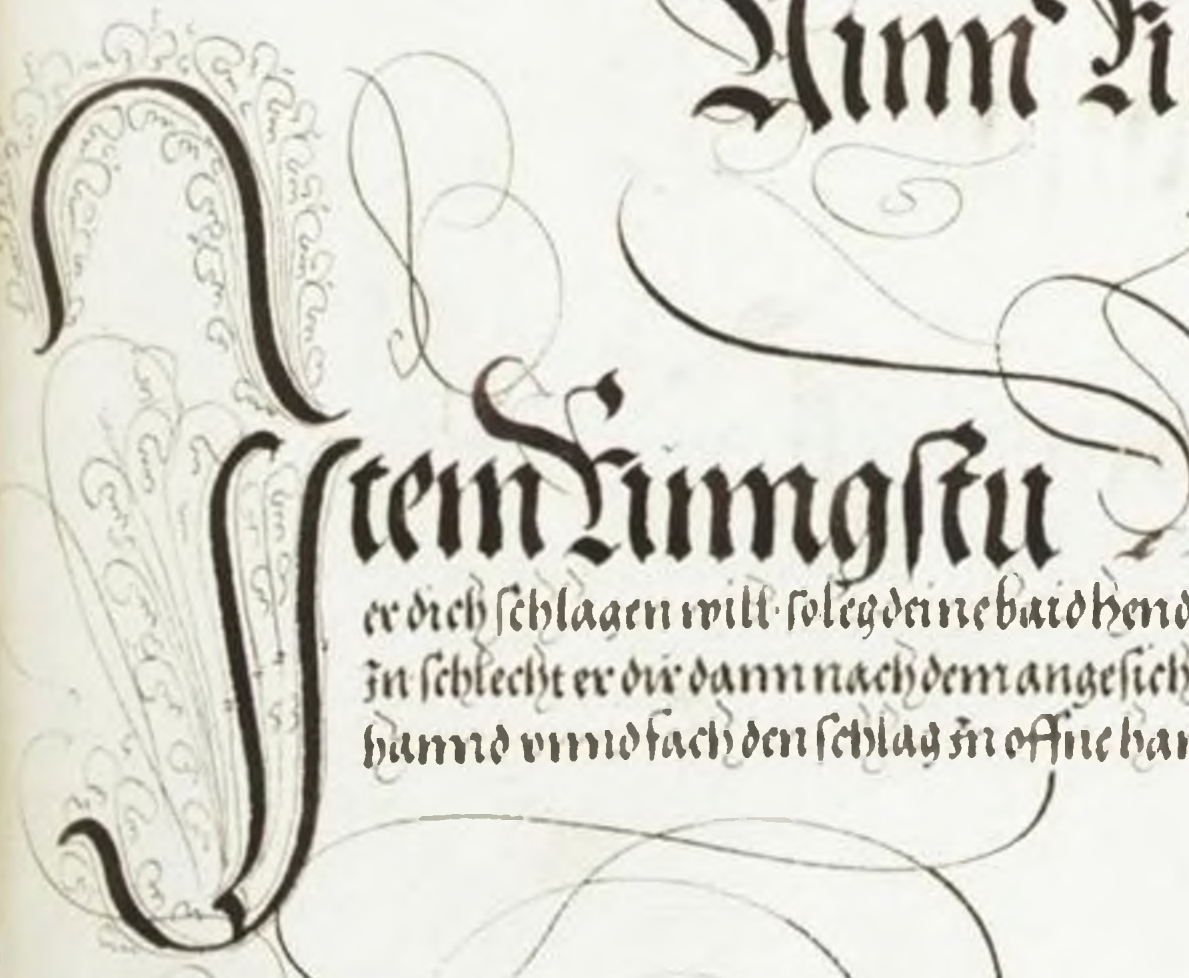 Ainn Ri
Item Ringstu
er dich schlagen will · so leg deine baid hend
In schlecht er dir dann nach dem angesich
hannd vnnd fach den schlag in offne han